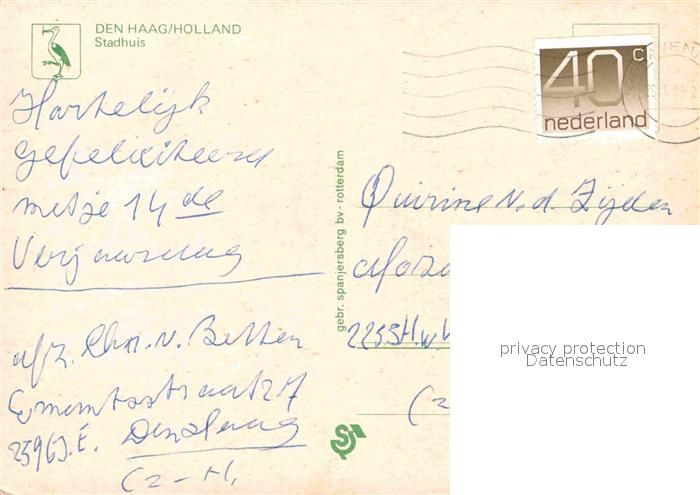 DEN HAAG/HOLLAND
Stadhuis
40 c
nederland
Hartelijk
gefeliciteerd
met je 14 de
Verjaardag
afz. Chr. v. Betten
2596 J.E. Den Haag
(Z-H.
gebr. spanjersberg bv - rotterdam
Quirine v.d. Zijden
2253 H.W.
(Z
privacy protection
Datenschutz